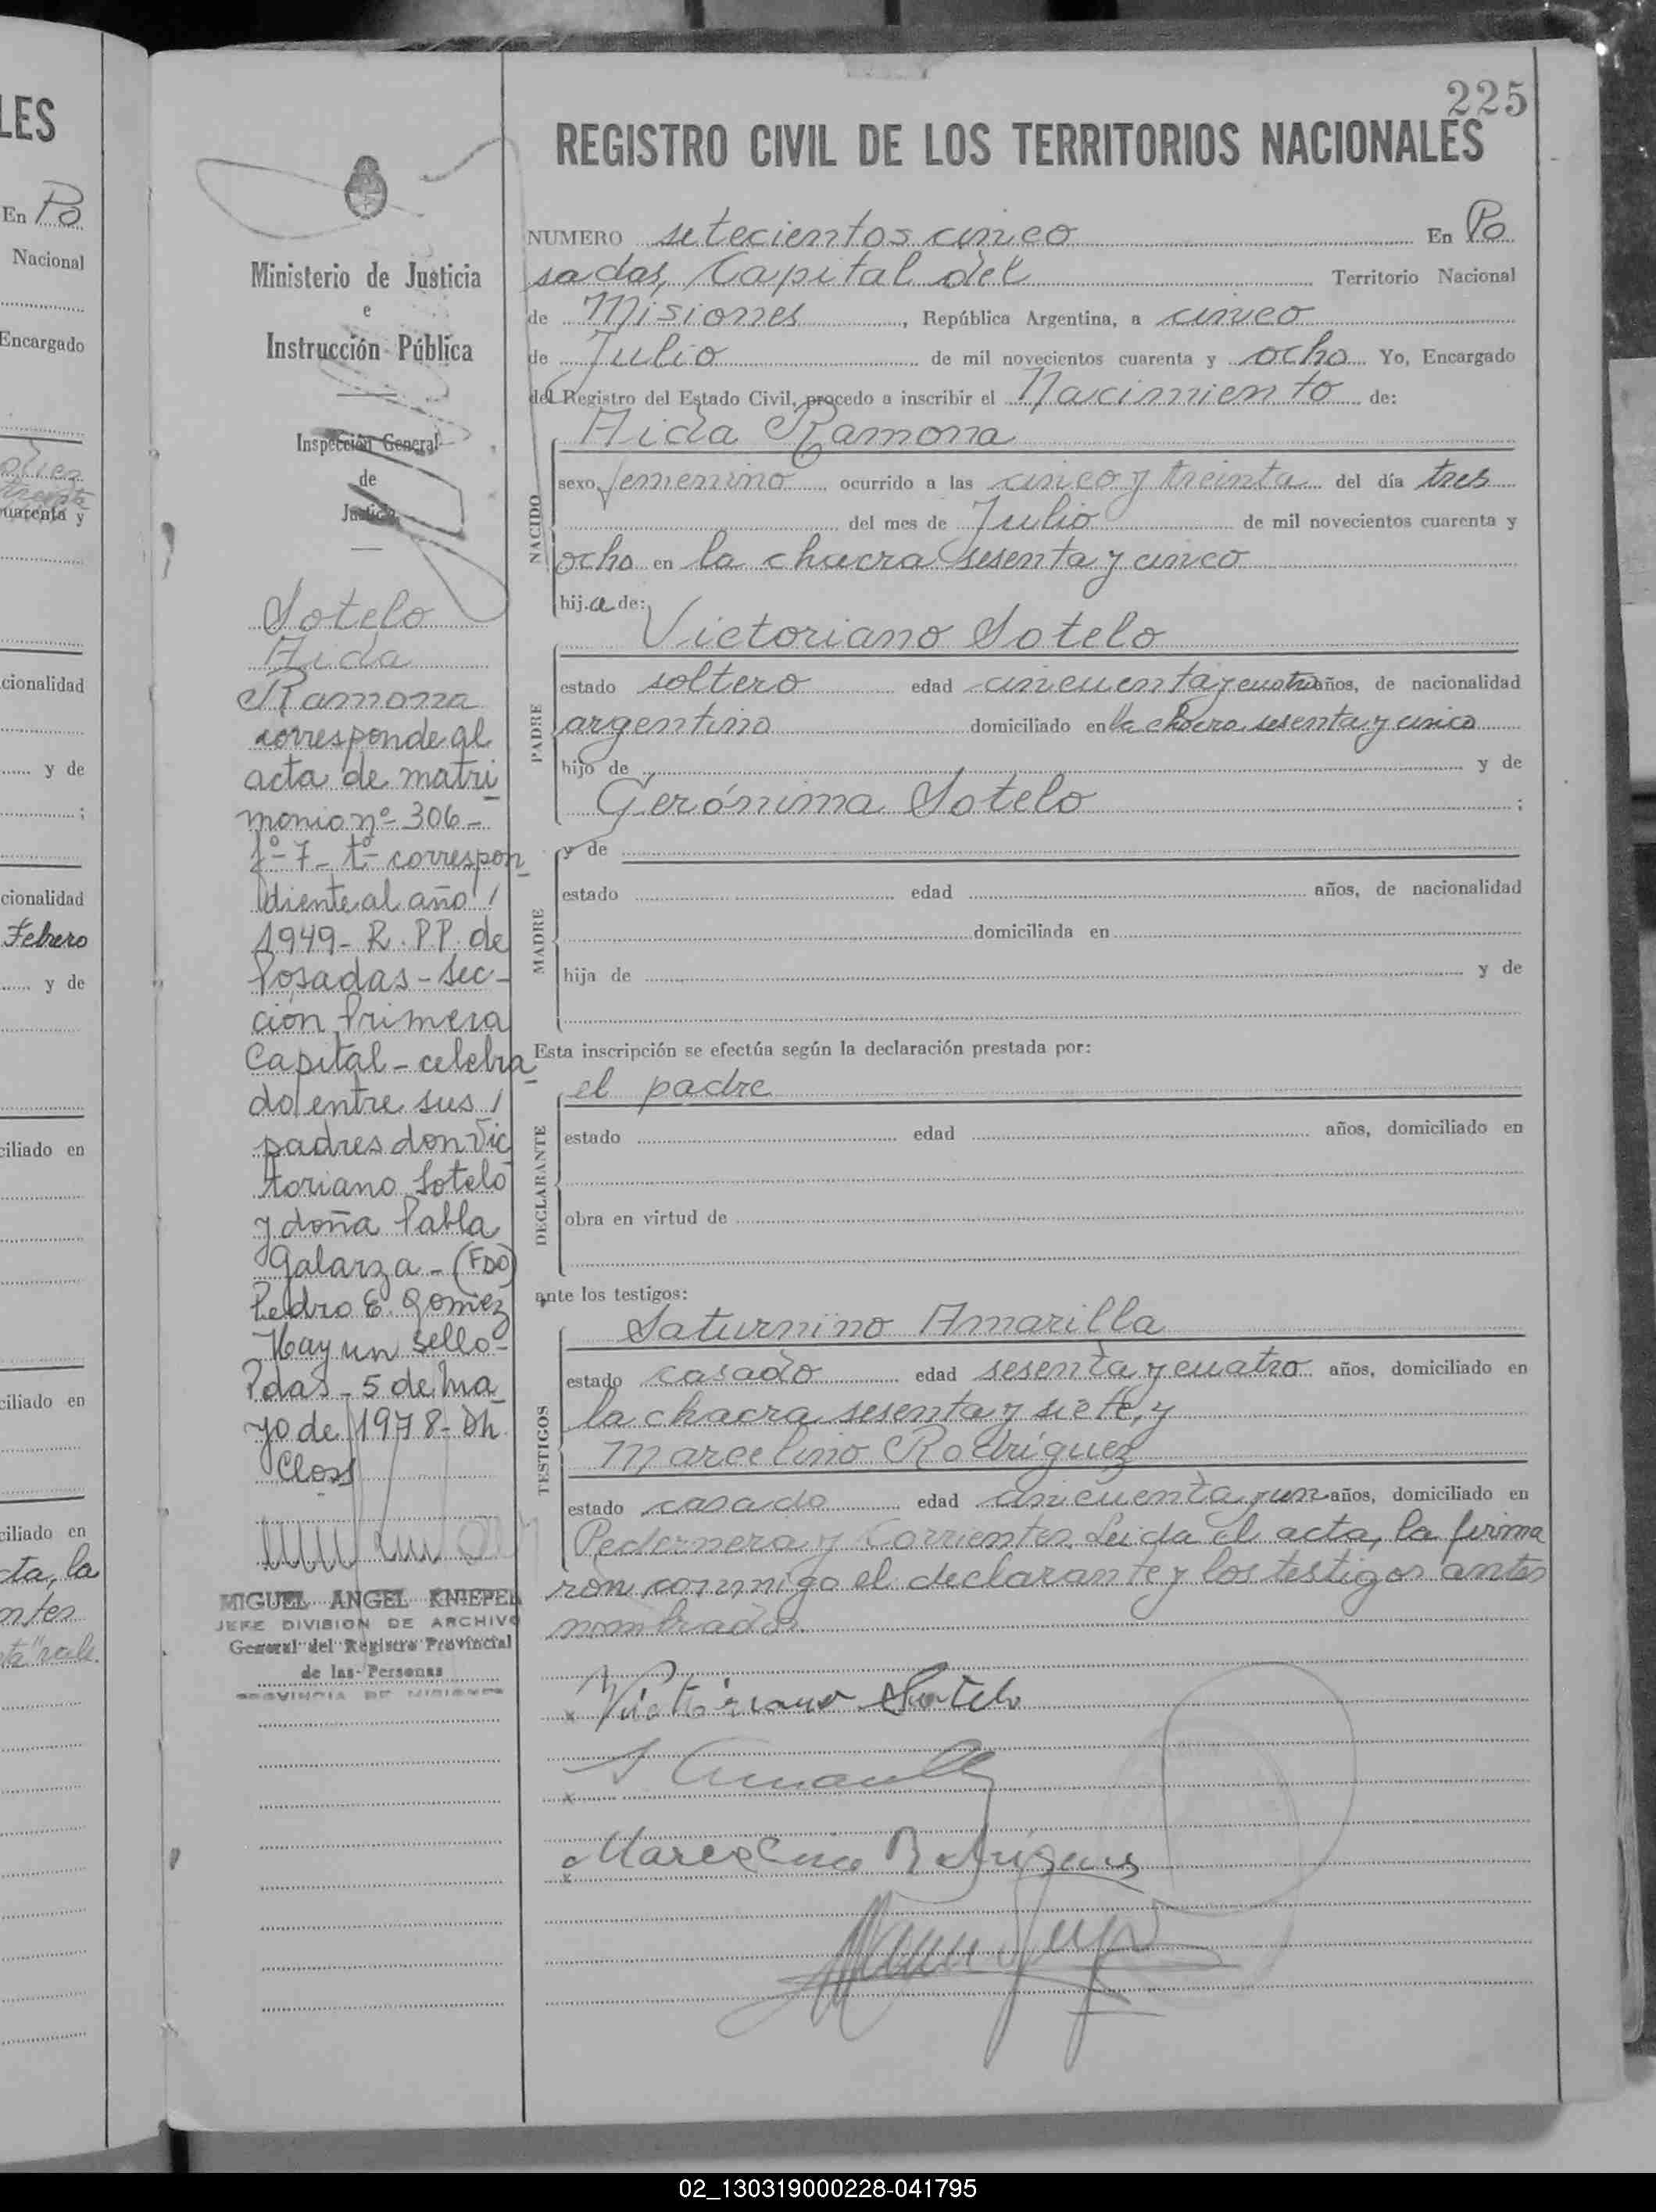 LES
En Po
Nacional
Encargado
uarenta y
cionalidad
y de
;
cionalidad
Febrero
y de
ciliado en
ciliado en
ciliado en
cta, la
ntes
225
REGISTRO CIVIL DE LOS TERRITORIOS NACIONALES
Ministerio de Justicia
e
Instrucción Pública
Inspección General
de
Justicia
Sotelo
Aida
Ramona
corresponde al
acta de matri
monio nº 306-
fº-7-tº-correspon
diente al año/
1949-R.P.P. de
Posadas-Sec-
ción Primera
Capital-celebra
do entre sus/
padres don Vic
toriano Sotelo
y doña Pabla
Galarza-(FDO)
Pedro E. Gomez
Hay un sello-
Pdas-5 de Ma
yo de 1978-Dh
Closs
MIGUEL ANGEL KNIEPER
JEFE DIVISION DE ARCHIVO
General del Registro Provincial
de las Personas
PROVINCIA DE MISIONES
NUMERO setecientos cinco En Po
sadas, Capital del Territorio Nacional
de Misiones, República Argentina, a cinco
de Julio de mil novecientos cuarenta y ocho Yo, Encargado
del Registro del Estado Civil, procedo a inscribir el Nacimiento de:
NACIDO
Aida Ramona
sexo femenino ocurrido a las cinco y treinta del día tres
del mes de Julio de mil novecientos cuarenta y
ocho en la chacra sesenta y cinco
hija de:
PADRE
Victoriano Sotelo
estado soltero edad cincuenta y cuatro años, de nacionalidad
argentino domiciliado en la chacra sesenta y cinco
hijo de y de
Gerónima Sotelo ;
MADRE
y de
estado edad años, de nacionalidad
domiciliada en
hija de y de
Esta inscripción se efectúa según la declaración prestada por:
DECLARANTE
el padre
estado edad años, domiciliado en
obra en virtud de
ante los testigos:
TESTIGOS
Saturnino Amarilla
estado casado edad sesenta y cuatro años, domiciliado en
la chacra sesenta y siete, y
Marcelino Rodriguez
estado casado edad cincuenta y un años, domiciliado en
Pedernera y Corrientes. Leida el acta, la firma
ron conmigo el declarante y los testigos antes
nombrados.
x Victoriano Sotelo
x S Amarilla
x Marcelino Rodrigues
02_130319000228-041795